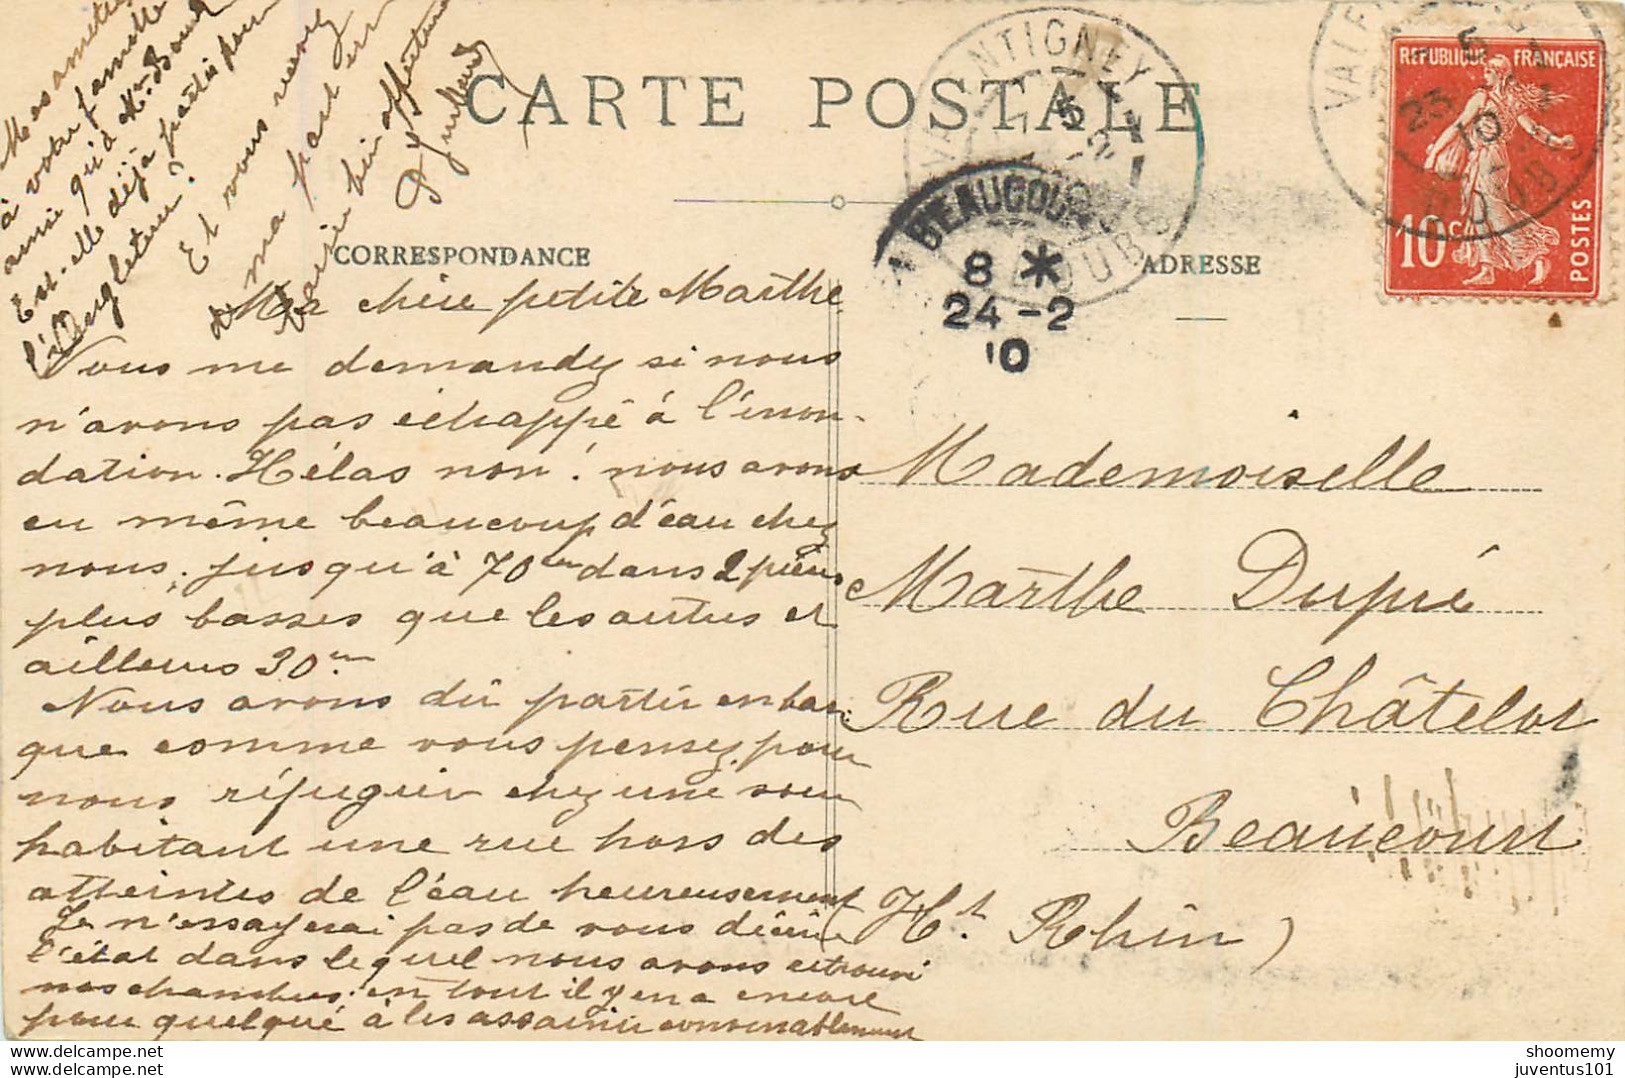 CARTE POSTALE
CORRESPONDANCE
ADRESSE
REPUBLIQUE FRANÇAISE
10c
POSTES
VALENTIGNEY
DOUBS
23
10
BEAUCOURT
8 *
24 -2
10
Ma chère petite Marthe
Vous me demandez si nous
n'avons pas échappé à l'inon-
dation. Hélas non! nous avons
eu même beaucoup d'eau chez
nous; jusqu'à 70cm dans 2 pièces
plus basses que les autres et
ailleurs 30cm
Nous avons dû partir en bar-
que comme vous pensez, pour
nous réfugier chez une sœur
habitant une rue hors des
atteintes de l'eau heureusement
Je n'essayerai pas de vous décrire
l'état dans lequel nous avons retrouvé
nos chambres; en tout il y en a encore
pour quelque à les assainir convenablement
Mes amitiés
à votre famille
ainsi qu'à Mr Bourl
Est-elle déjà partie pour
l'Angleterre?
Et vous recevez
de ma part un
baiser bien affectueux
Mademoiselle
Marthe Dupré
Rue du Châtelot
Beaucourt
(Ht. Rhin)
shoomemy
juventus101